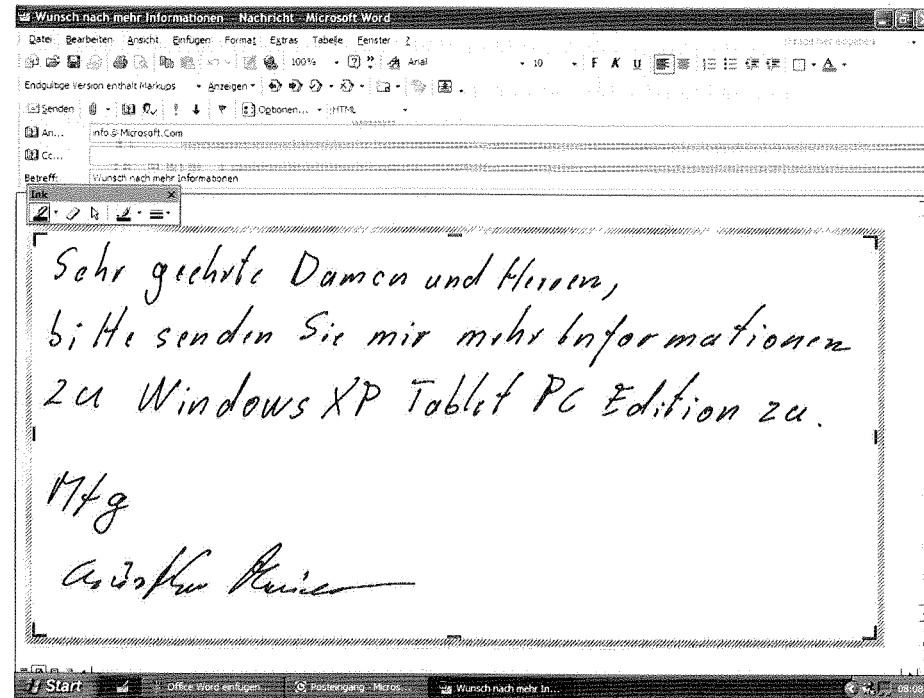 Wunsch nach mehr Informationen - Nachricht - Microsoft Word
Datei Bearbeiten Ansicht Einfügen Format Extras Tabelle Fenster ?
100% Arial 10 F K U
Endgültige Version enthält Markups Anzeigen
Senden Optionen... HTML
An... info@Microsoft.Com
Cc...
Betreff: Wunsch nach mehr Informationen
Ink
Sehr geehrte Damen und Herren,
bitte senden Sie mir mehr Informationen
zu Windows XP Tablet PC Edition zu.
Mfg
Start Office Word einfügen... Posteingang - Micros... Wunsch nach mehr In...